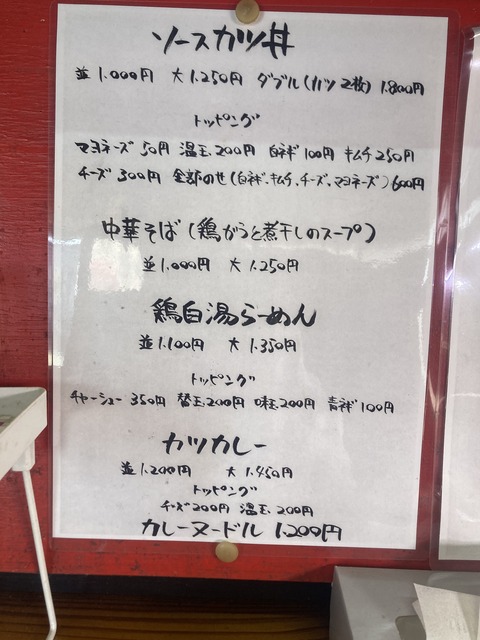 ソースカツ丼
並 1.000円 大 1.250円 ダブル(カツ2枚) 1.800円
トッピング
マヨネーズ 50円 温玉 200円 白ネギ 100円 キムチ 250円
チーズ 300円 全部のせ(白ネギ、キムチ、チーズ、マヨネーズ) 600円
中華そば(鶏がらと煮干しのスープ)
並 1.000円 大 1.250円
鶏白湯らーめん
並 1.100円 大 1.350円
トッピング
チャーシュー 350円 替玉 200円 味玉 200円 青ネギ 100円
カツカレー
並 1.200円 大 1.450円
トッピング
チーズ 200円 温玉 200円
カレーヌードル 1.200円